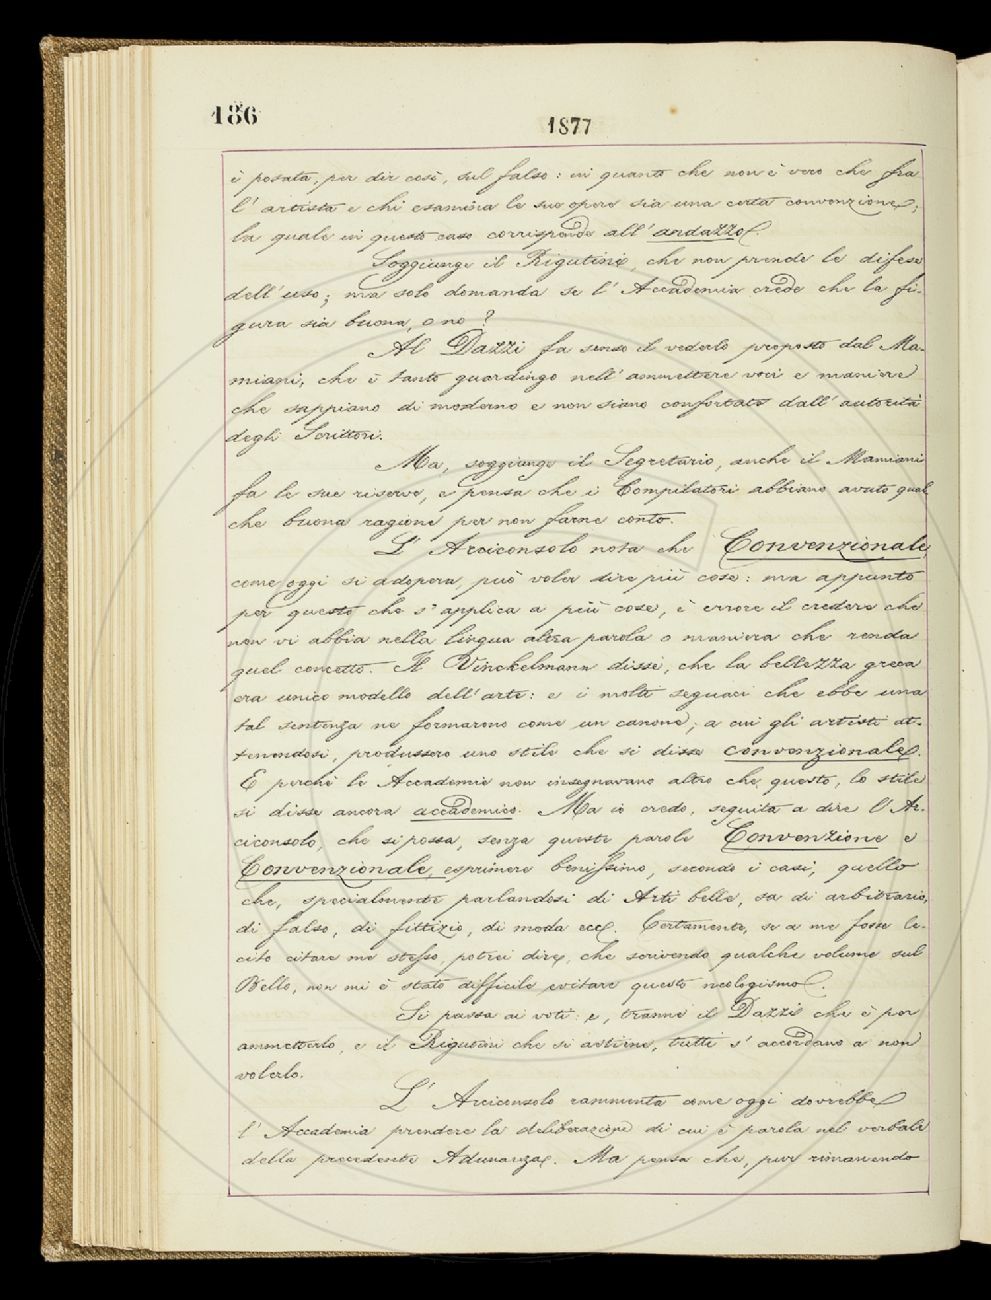 186
1877
è posata, per dir così, sul falso: in quanto che non è vero che fra
l'artista e chi esamina le sue opere sia una certa convenzione;
la quale in questo caso corrisponde all'andazzo.
Soggiunge il Rigutini, che non prende le difese
dell'uso; ma solo domanda se l'Accademia crede che la fi-
gura sia buona, o no?
Al Dazzi fa senso il vederlo proposto dal Ma-
miani, che è tanto guardingo nell'ammettere voci e maniere
che sappiano di moderno e non siano confortate dall'autorità
degli Scrittori.
Ma, soggiunge il Segretario, anche il Mamiani
fa le sue riserve, e pensa che i Compilatori abbiano avuto qual
che buona ragione per non farne conto.
L'Arciconsolo nota che Convenzionale,
come oggi si adopera, può voler dire più cose: ma appunto
per questo che s'applica a più cose, è errore il credere che
non vi abbia nella lingua altra parola o maniera che renda
quel concetto. Il Vinckelmann disse, che la bellezza greca
era unico modello dell'arte: e i molti seguaci che ebbe una
tal sentenza ne formarono come un canone; a cui gli artisti at-
tenendosi, produssero uno stile che si disse convenzionale.
E perchè le Accademie non insegnavano altro che questo, lo stile
si disse ancora accademico. Ma io credo, seguita a dire l'Ar-
ciconsolo, che si possa, senza queste parole Convenzione e
Convenzionale, esprimere benissimo, secondo i casi, quello
che, specialmente parlandosi di Arti belle, sa di arbitrario,
di falso, di fittizio, di moda ecc. Certamente, se a me fosse le-
cito citare me stesso, potrei dire, che scrivendo qualche volume sul
Bello, non mi è stato difficile evitare questo neologismo.
Si passa ai voti: e, tranne il Dazzi che è per
ammetterlo, e il Rigutini che si astiene, tutti s'accordano a non
volerlo.
L'Arciconsolo rammenta come oggi dovrebbe
l'Accademia prendere la deliberazione di cui è parola nel verbale
della precedente Adunanza. Ma pensa che, pur rimanendo